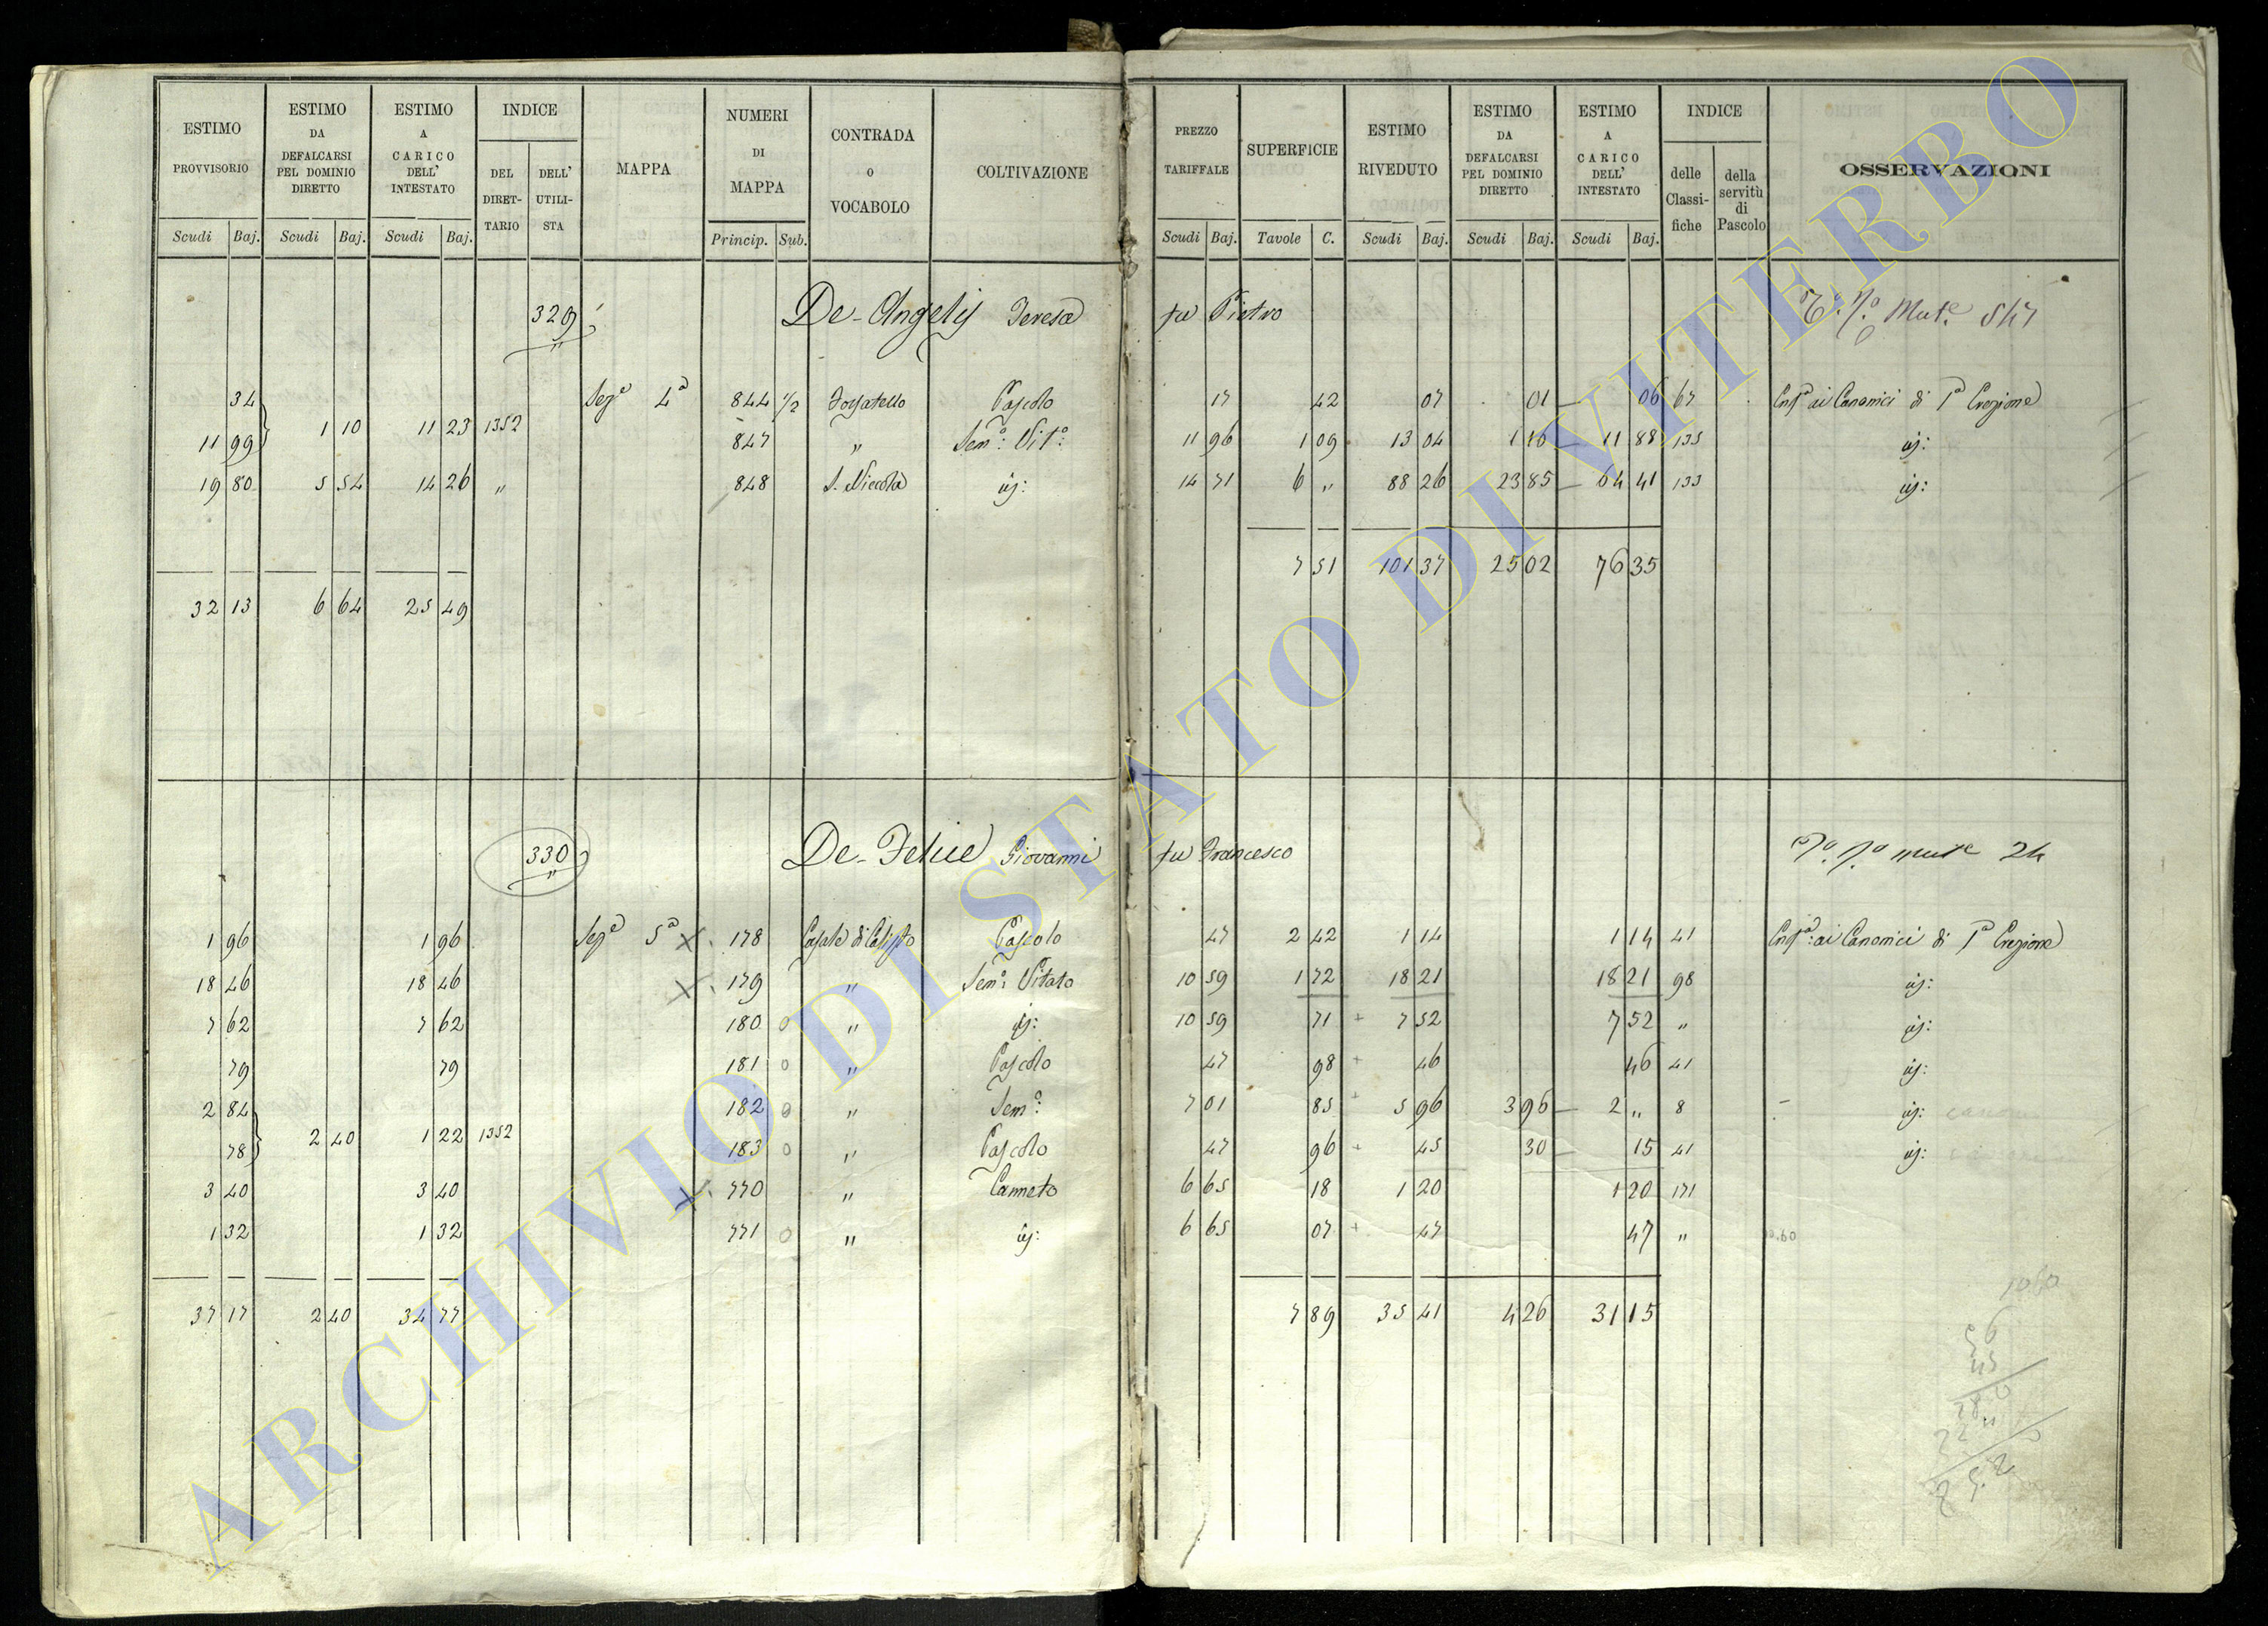 ESTIMO PROVVISORIO ESTIMO DA DEFALCARSI PEL DOMINIO DIRETTO ESTIMO A CARICO DELL' INTESTATO INDICE DEL DIRETTARIO DELL' UTILISTA MAPPA NUMERI DI MAPPA CONTRADA O VOCABOLO COLTIVAZIONE PREZZO TARIFFALE SUPERFICIE ESTIMO RIVEDUTO ESTIMO DA DEFALCARSI PEL DOMINIO DIRETTO ESTIMO A CARICO DELL' INTESTATO INDICE delle Classifiche della servitù di Pascolo OSSERVAZIONI
Scudi Baj. Scudi Baj. Scudi Baj. Princip. Sub. Scudi Baj. Tavole C. Scudi Baj. Scudi Baj. Scudi Baj.
329 De-Angelis Teresa fu Pietro 547
34 Sez.e 4a 844 1/2 Fossatello Pascolo 17 42 07 01 06 67 Enf.a ai Canonici di 1a Erezione
11 99 1 10 11 23 1352 847 " Sem.o Vit.o 11 96 1 09 13 04 1 16 11 88 135 id:
19 80 5 54 14 26 " 848 S. Niccola id: 14 71 6 " 88 26 23 85 64 41 133 id:
7 51 101 37 25 02 76 35
32 13 6 64 25 49
330 De-Felice Giovanni fu Francesco 24
1 96 1 96 Sez.e 5a 178 Casale di Calisto Pascolo 47 2 42 1 14 1 14 41 Enf.a ai Canonici di 1a Erezione
18 46 18 46 179 " Sem.o Vitato 10 59 1 72 18 21 18 21 98 id:
7 62 7 62 180 0 " id: 10 59 71 + 7 52 7 52 " id:
79 79 181 0 " Pascolo 47 98 + 46 46 41 id:
2 84 182 0 " Sem.o 7 01 85 + 5 96 3 96 2 " 8 id:
78 2 40 1 22 1352 183 0 " Pascolo 47 96 + 45 30 15 41 id:
3 40 3 40 770 " Canneto 6 65 18 1 20 1 20 171
1 32 1 32 771 0 " id: 6 65 07 + 47 47 "
37 17 2 40 34 77 7 89 35 41 4 26 31 15
ARCHIVIO DI STATO DI VITERBO